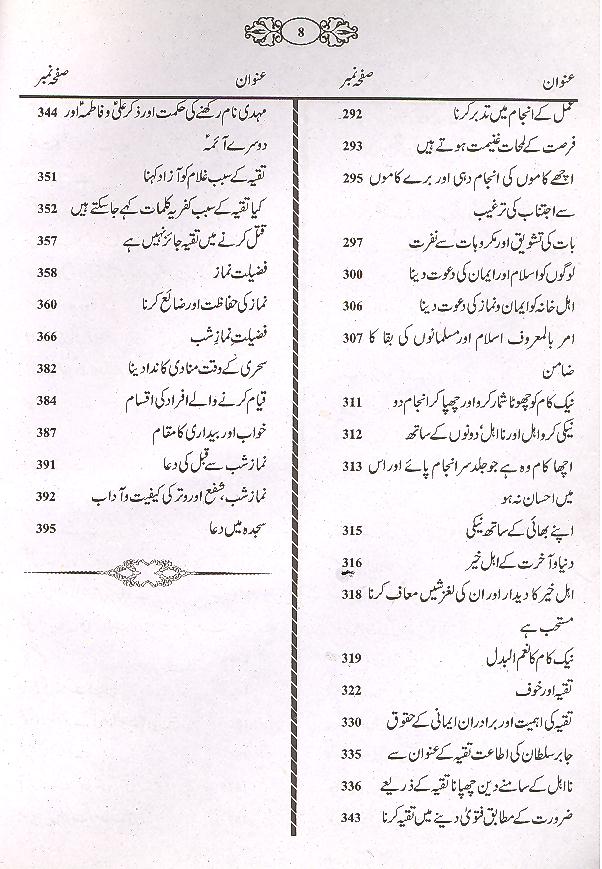 8
عنوان صفحہ نمبر
عمل کے انجام میں تدبر کرنا 292
فرصت کے لمحات غنیمت ہوتے ہیں 293
اچھے کاموں کی انجام دہی اور برے کاموں 295
سے اجتناب کی ترغیب
بات کی تشویق اور مکروہات سے نفرت 297
لوگوں کو اسلام اور ایمان کی دعوت دینا 300
اہل خانہ کو ایمان و نماز کی دعوت دینا 306
امر بالمعروف اسلام اور مسلمانوں کی بقا کا 307
ضامن
نیک کام کو چھوٹا شمار کرو اور چھپا کر انجام دو 311
نیکی کرو اہل اور نا اہل دونوں کے ساتھ 312
اچھا کام وہ ہے جو جلد سر انجام پائے اور اس 313
میں احسان نہ ہو
اپنے بھائی کے ساتھ نیکی 315
دنیا و آخرت کے اہل خیر 316
اہل خیر کا دیدار اور ان کی لغزشیں معاف کرنا 318
مستحب ہے
نیک کام کا نعم البدل 319
تقیہ اور خوف 322
تقیہ کی اہمیت اور برادران ایمانی کے حقوق 330
جابر سلطان کی اطاعت تقیہ کے عنوان سے 335
نا اہل کے سامنے دین چھپانا تقیہ کے ذریعے 336
ضرورت کے مطابق فتویٰ دینے میں تقیہ کرنا 343
عنوان صفحہ نمبر
مہدی نام رکھنے کی حکمت اور ذکر علیؑ و فاطمہؑ اور 344
دوسرے آئمہؑ
تقیہ کے سبب غلام کو آزاد کہنا 351
کیا تقیہ کے سبب کفریہ کلمات کہے جا سکتے ہیں 352
قتل کرنے میں تقیہ جائز نہیں ہے 357
فضیلت نماز 358
نماز کی حفاظت اور ضائع کرنا 360
فضیلت نماز شب 366
سحری کے وقت منادی کا ندا دینا 382
قیام کرنے والے افراد کی اقسام 384
خواب اور بیداری کا مقام 387
نماز شب سے قبل کی دعا 391
نماز شب، شفع اور وتر کی کیفیت و آداب 392
سجدہ میں دعا 395